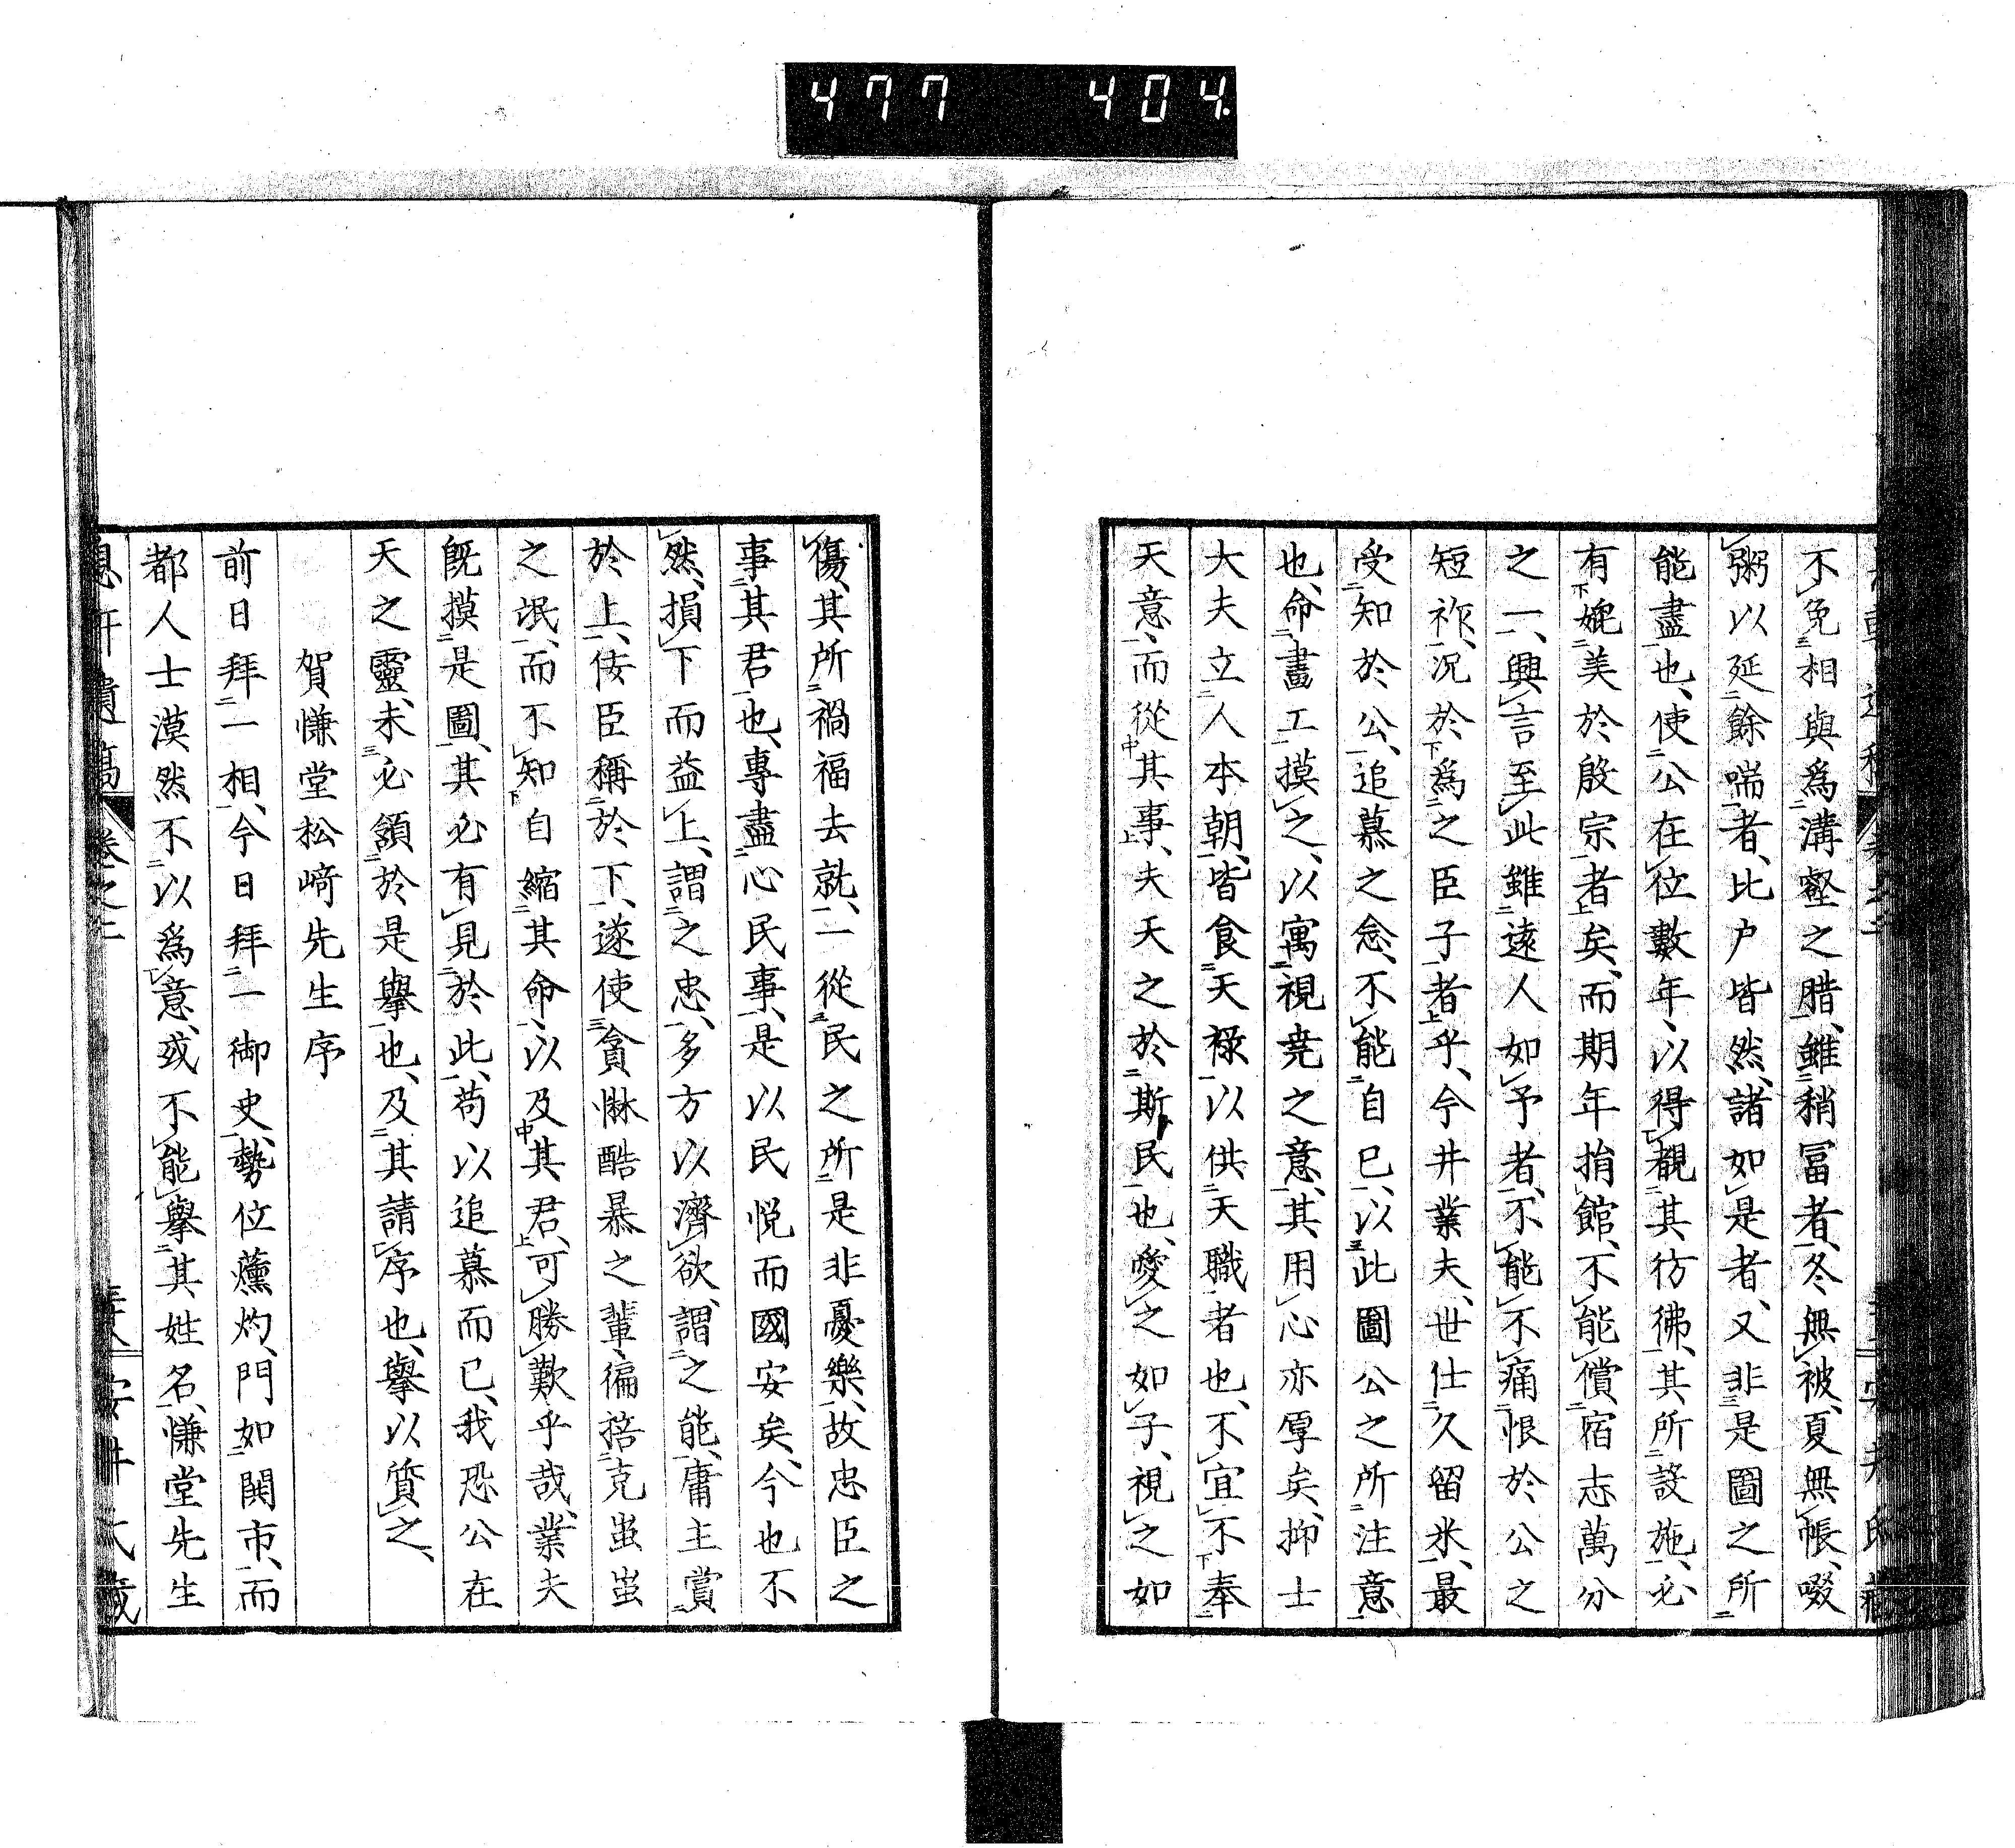 477 404
不免相與爲溝壑之腊、雖稍冨者、冬無被、夏無帳、啜
粥以延餘喘者、比户皆然、諸如是者、又非是圖之所
能盡也、使公在位數年、以得覩其彷彿、其所設施、必
有媲美於殷宗者矣、而期年捐館、不能償宿志萬分
之一、興言至此、雖遠人如予者、不能不痛恨於公之
短祚、況於爲之臣子者乎、今井業夫、世仕久留米、最
受知於公、追慕之念、不能自已、以此圖公之所注意
也、命畫工摸之、以寓視尭之意、其用心亦厚矣、抑士
大夫立人本朝、皆食天祿、以供天職者也、不宜不奉
天意、而從其事、夫天之於斯民也、愛之如子、視之如
傷、其所禍福去就、一從民之所是非憂樂、故忠臣之
事其君也、專盡心民事、是以民悦而國安矣、今也不
然、損下而益上、謂之忠、多方以濟欲、謂之能、庸主賞
於上、佞臣稱於下、遂使貪惏酷暴之輩、徧掊克蚩蚩
之氓、而不知自縮其命、以及其君、可勝歎乎哉、業夫
既摸是圖、其必有見於此、苟以追慕而已、我恐公在
天之靈、未必頷於是擧也、及其請序也、擧以質之、
賀慊堂松﨑先生序
前日拜一相、今日拜一御史、勢位薰灼、門如閧市、而
都人士漠然不以爲意、或不能擧其姓名、慊堂先生
息軒遺稿 卷之二 安井氏藏